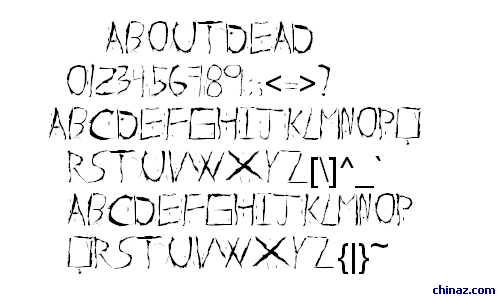 ABOUTDEAD
0123456789:;<=>?
ABCDEFGHIJKLMNOPQ
RSTUVWXYZ[\]^_`
ABCDEFGHIJKLMNOP
QRSTUVWXYZ{|}~
chinaz.com